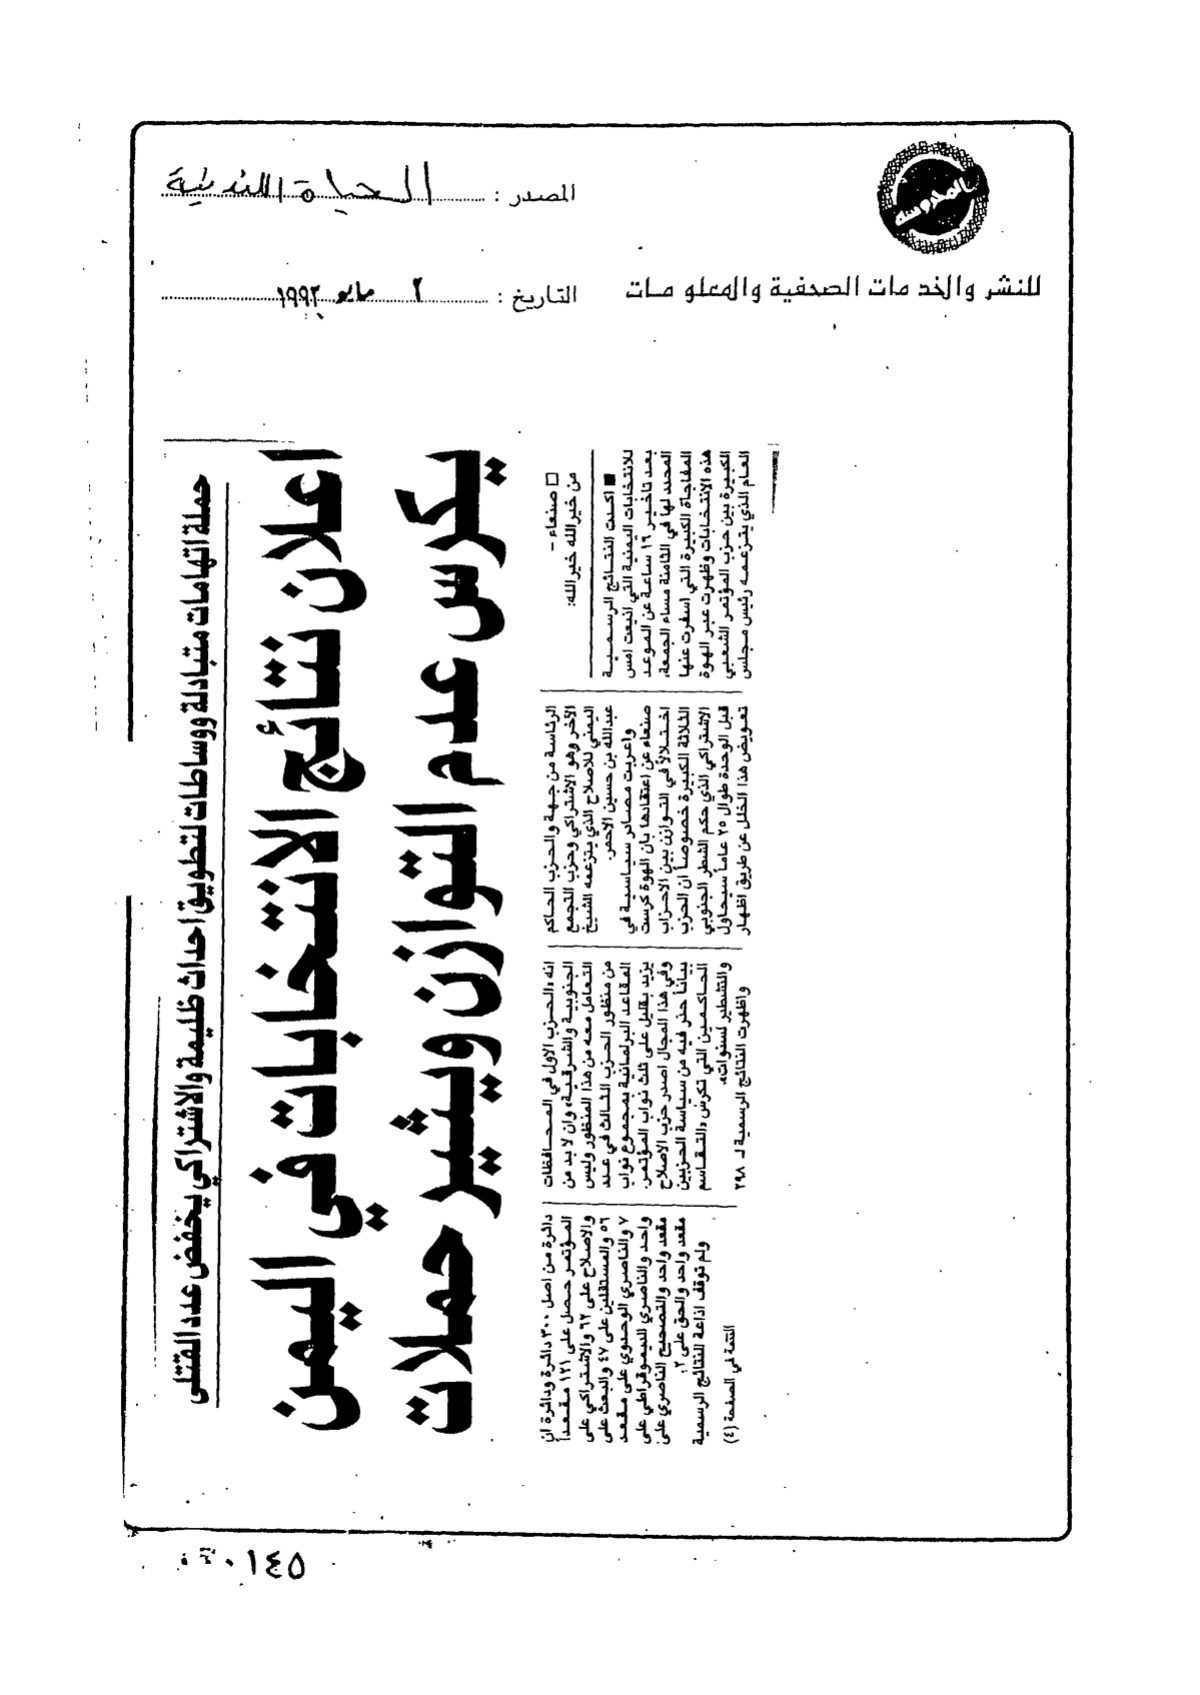 المصدر : الحياة اللندنية
للنشر والخدمات الصحفية والمعلومات
التاريخ : ٢ مايو ١٩٩٣
حملة اتهامات متبادلة ووساطات لتطويق احداث ظليمة والاشتراكي يخفض عدد القتلى
اعلان نتائج الانتخابات في اليمن
يكرس عدم التوازن ويشير حملات
□ صنعاء –
من خيرالله خيرالله:
■ اكدت النتائج الرسمية
للانتخابات اليمنية التي اذيعت امس
بعد تأخير ١٦ ساعة عن الموعد
المحدد لها في الثامنة مساء الجمعة،
المفاجأة الكبيرة التي اسفرت عنها
هذه الانتخابات وظهرت عبر الهوة
الكبيرة بين حزب المؤتمر الشعبي
العام الذي يتزعمه رئيس مجلس
الرئاسة من جهة والحزب الحاكم
الآخر وهو الاشتراكي وحزب التجمع
اليمني للاصلاح الذي يتزعمه الشيخ
عبدالله بن حسين الاحمر.
واعربت مصادر سياسية في
صنعاء عن اعتقادها بان الهوة كرست
اختلالاً في التوازن بين الاحزاب
الثلاثة الكبيرة خصوصاً ان الحزب
الاشتراكي الذي حكم الشطر الجنوبي
قبل الوحدة طوال ٢٥ عاماً سيحاول
تعويض هذا الخلل عن طريق اظهار
انه «الحزب الاول في المحافظات
الجنوبية والشرقية» وان لا بد من
التعامل معه من هذا المنظور وليس
من منظور الحزب الثالث في عدد
المقاعد البرلمانية بمجموع نواب
يزيد بقليل على ثلث نواب المؤتمر.
وفي هذا المجال اصدر حزب الاصلاح
بياناً حذر فيه من سياسة الحزبين
الحاكمين التي تكرس «التقاسم
والتشطير لسنوات».
واظهرت النتائج الرسمية لـ ٢٩٨
دائرة من اصل ٣٠٠ دائرة ودائرة ان
المؤتمر حصل على ١٢١ مقعداً
والاصلاح على ٦٢ والاشتراكي على
٥٦ والمستقلين على ٤٧ والبعث على
٧ والناصري الوحدوي على مقعد
واحد والناصري الديموقراطي على
مقعد واحد والتصحيح الناصري على
مقعد واحد والحق على ٢.
ولم توقف اذاعة للنتائج الرسمية
التتمة في الصفحة (٤)
٠١٤٥